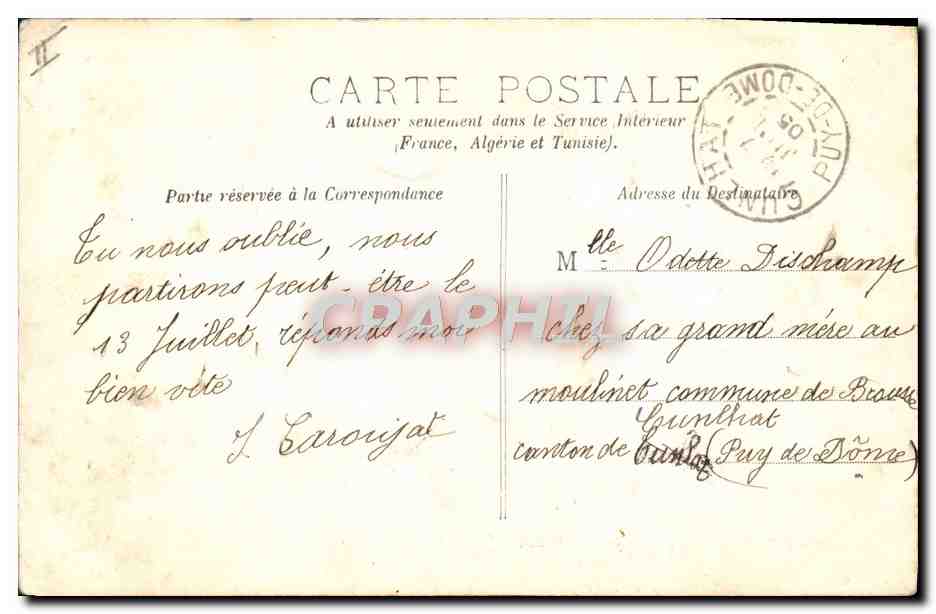 II
CARTE POSTALE
A utiliser seulement dans le Service Intérieur
(France, Algérie et Tunisie).
CUNLHAT PUY-DE-DOME
05
Partie réservée à la Correspondance
Tu nous oublie, nous
partirons peut-être le
13 Juillet, réponds moi
bien vite
Adresse du Destinataire
Mlle Odette Dischamp
chez sa grand mére au
moulinet commune de Brousse
Cunlhat
canton de (Puy de Dôme)
CPAPHIL